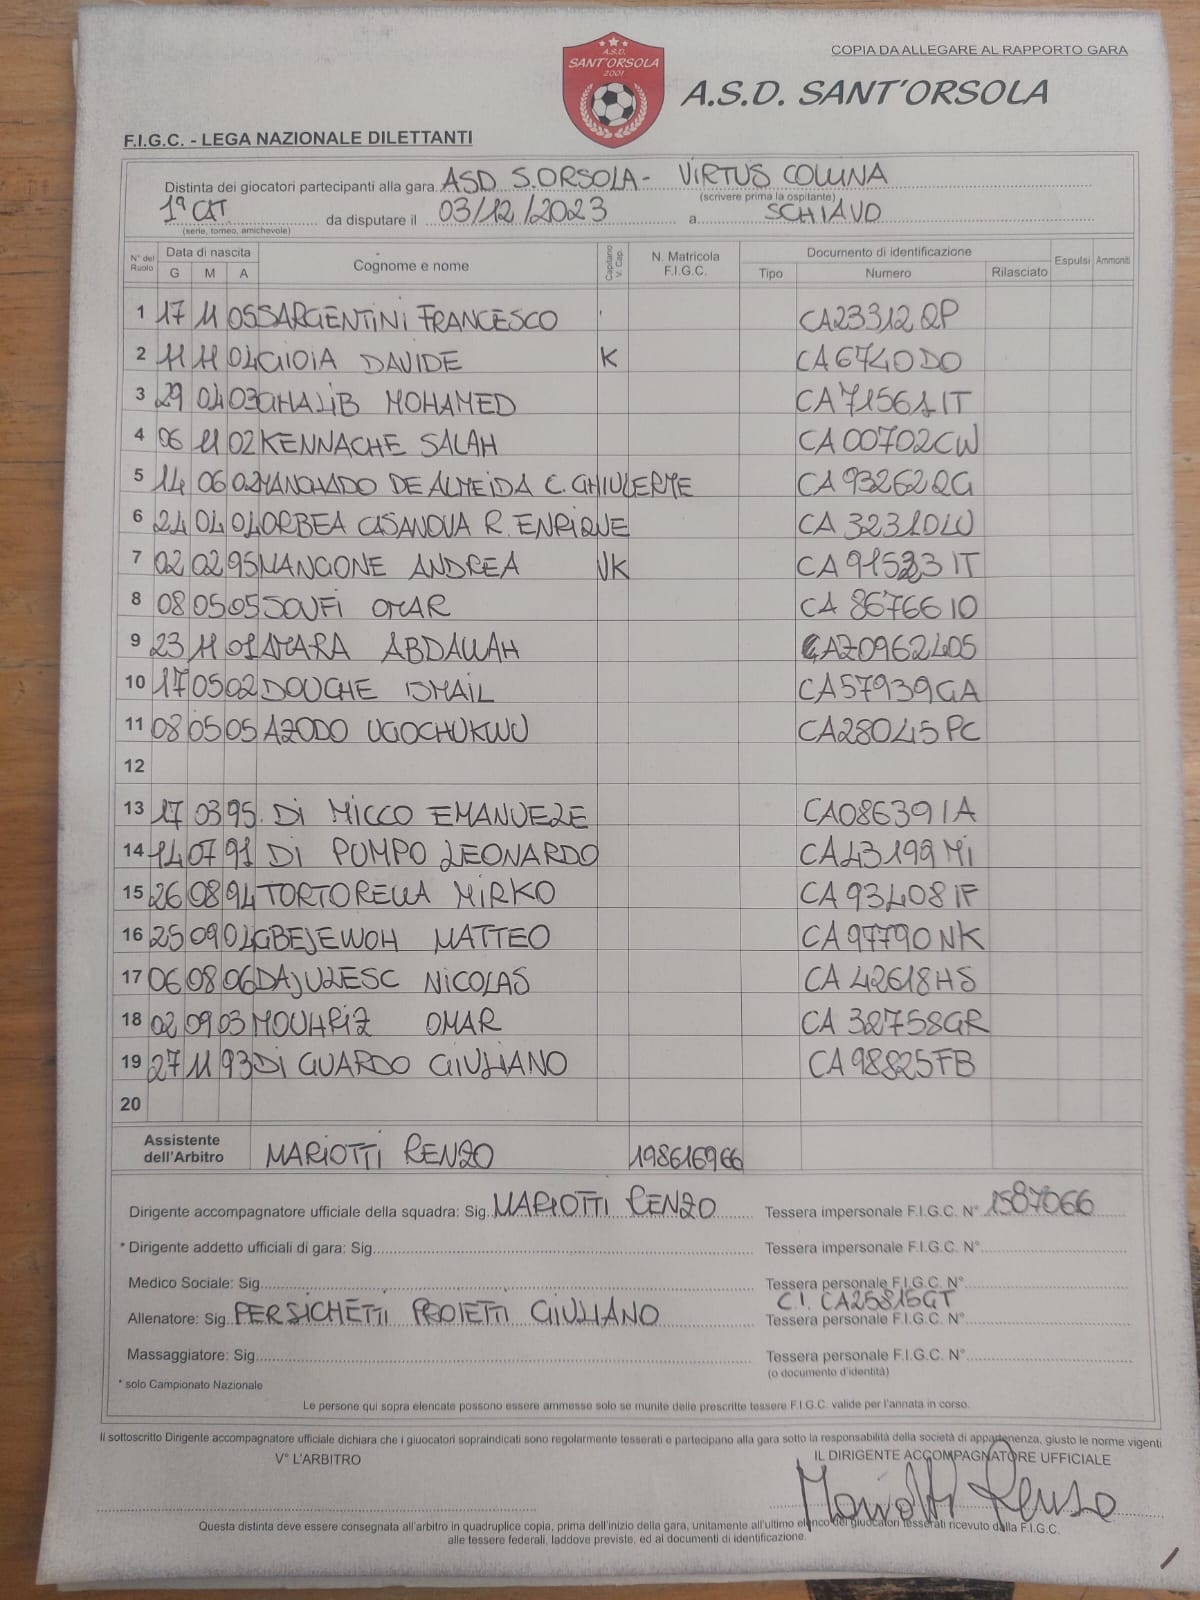 COPIA DA ALLEGARE AL RAPPORTO GARA
A.S.D.
SANT'ORSOLA
2001
A.S.D. SANT'ORSOLA
F.I.G.C. - LEGA NAZIONALE DILETTANTI
Distinta dei giocatori partecipanti alla gara ASD S.ORSOLA - VIRTUS COLLINA
(scrivere prima la ospitante)
1ª CAT da disputare il 03/12/2023 a SCHIAVO
(serie, torneo, amichevole)
N° del Ruolo Data di nascita G M A Cognome e nome Capitano V. Cap. N. Matricola F.I.G.C. Documento di identificazione Tipo Numero Rilasciato Espulsi Ammoniti
1 17 11 05 SARGENTINI FRANCESCO CA23312QP
2 11 11 04 GIOIA DAVIDE K CA6740DO
3 29 04 03 GHALIB MOHAMED CA71561IT
4 06 11 02 KENNACHE SALAH CA00702CW
5 14 06 02 MANCHADO DE ALMEIDA C. GHIULERME CA93262QG
6 24 04 04 ORBEA CASANOVA R. ENRIQUE CA32310LW
7 02 02 95 MANGONE ANDREA VK CA91523IT
8 08 05 05 SOUFI OMAR CA86766IO
9 23 11 01 AMARA ABDALLAH CAZ0962405
10 17 05 02 DOUCHE ISMAIL CA57939GA
11 08 05 05 AZODO UGOCHUKWU CA28045PC
12
13 17 03 95 Di MICCO EMANUELE CA08639IA
14 14 07 91 DI PUMPO LEONARDO CA43199Mi
15 26 08 94 TORTORELLA MIRKO CA93408IF
16 25 09 04 GBEJEWOH MATTEO CA97790NK
17 06 08 06 DAJULESC NICOLAS CA42618HS
18 02 09 03 MOUHRIZ OMAR CA32758GR
19 27 11 93 Di GUARDO GIULIANO CA98825FB
20
Assistente dell'Arbitro MARIOTTI RENZO 198616966
Dirigente accompagnatore ufficiale della squadra: Sig. MARIOTTI RENZO Tessera impersonale F.I.G.C. N° 1587066
* Dirigente addetto ufficiali di gara: Sig. Tessera impersonale F.I.G.C. N°
Medico Sociale: Sig. Tessera personale F.I.G.C. N°
C.I. CA25815GT
Allenatore: Sig. PERSICHETTI PROIETTI GIULIANO Tessera personale F.I.G.C. N°
Massaggiatore: Sig. Tessera personale F.I.G.C. N°
(o documento d'identità)
* solo Campionato Nazionale
Le persone qui sopra elencate possono essere ammesse solo se munite delle prescritte tessere F.I.G.C. valide per l'annata in corso.
Il sottoscritto Dirigente accompagnatore ufficiale dichiara che i giuocatori sopraindicati sono regolarmente tesserati e partecipano alla gara sotto la responsabilità della società di appartenenza, giusto le norme vigenti
V° L'ARBITRO IL DIRIGENTE ACCOMPAGNATORE UFFICIALE
Mariotti Renzo
Questa distinta deve essere consegnata all'arbitro in quadruplice copia, prima dell'inizio della gara, unitamente all'ultimo elenco dei giuocatori tesserati ricevuto dalla F.I.G.C.
alle tessere federali, laddove previste, ed ai documenti di identificazione.